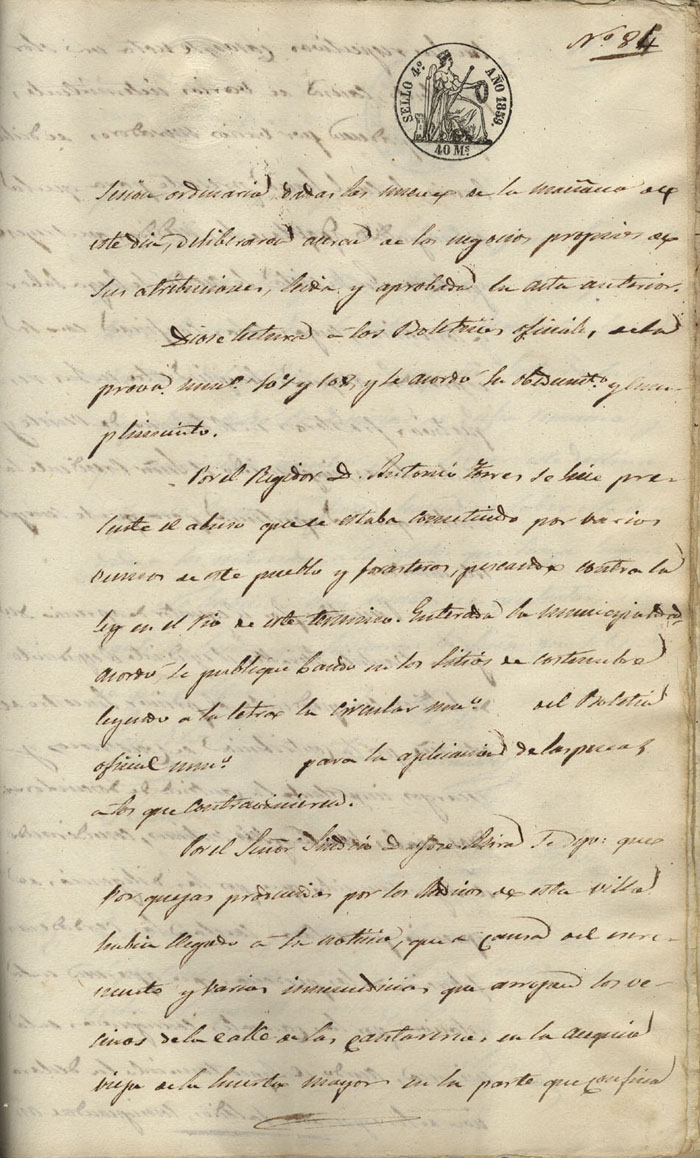 Nº 84
SELLO 4º. AÑO 1859.
40 Ms.
sesión ordinaria, dadas las nueve de la mañana de
este dia, deliberaron acerca de los negocios propios de
sus atribuciones, leida y aprobada la acta anterior.
Diose lectura a los Boletines oficiales de la
prova. numº. 107 y 108, y se acordó su obedimtº. y cum-
plimiento.
Por el Regidor D. Antonio Torres se hizo pre-
sente el abuso que se estaba cometiendo por varios
vecinos de este pueblo y forasteros, pescando contra la
ley en el rio de este termino. Enterada la municipalidad
acordó se publique bando en los sitios de costumbre
leyendo a la letra la circular numº. del Boletin
oficial numº. para la aplicacion de las penas
a los que contravinieren.
Por el Señor Sindico D. Jose Mira se dijo: que
por quejas producidas por los Medicos de esta villa
habia llegado a la noticia, que a causa del
y varias inmundicias que arrojan los ve-
cinos de la calle de las Cantarerias, en la acequia
vieja de la huerta mayor en la parte que confina